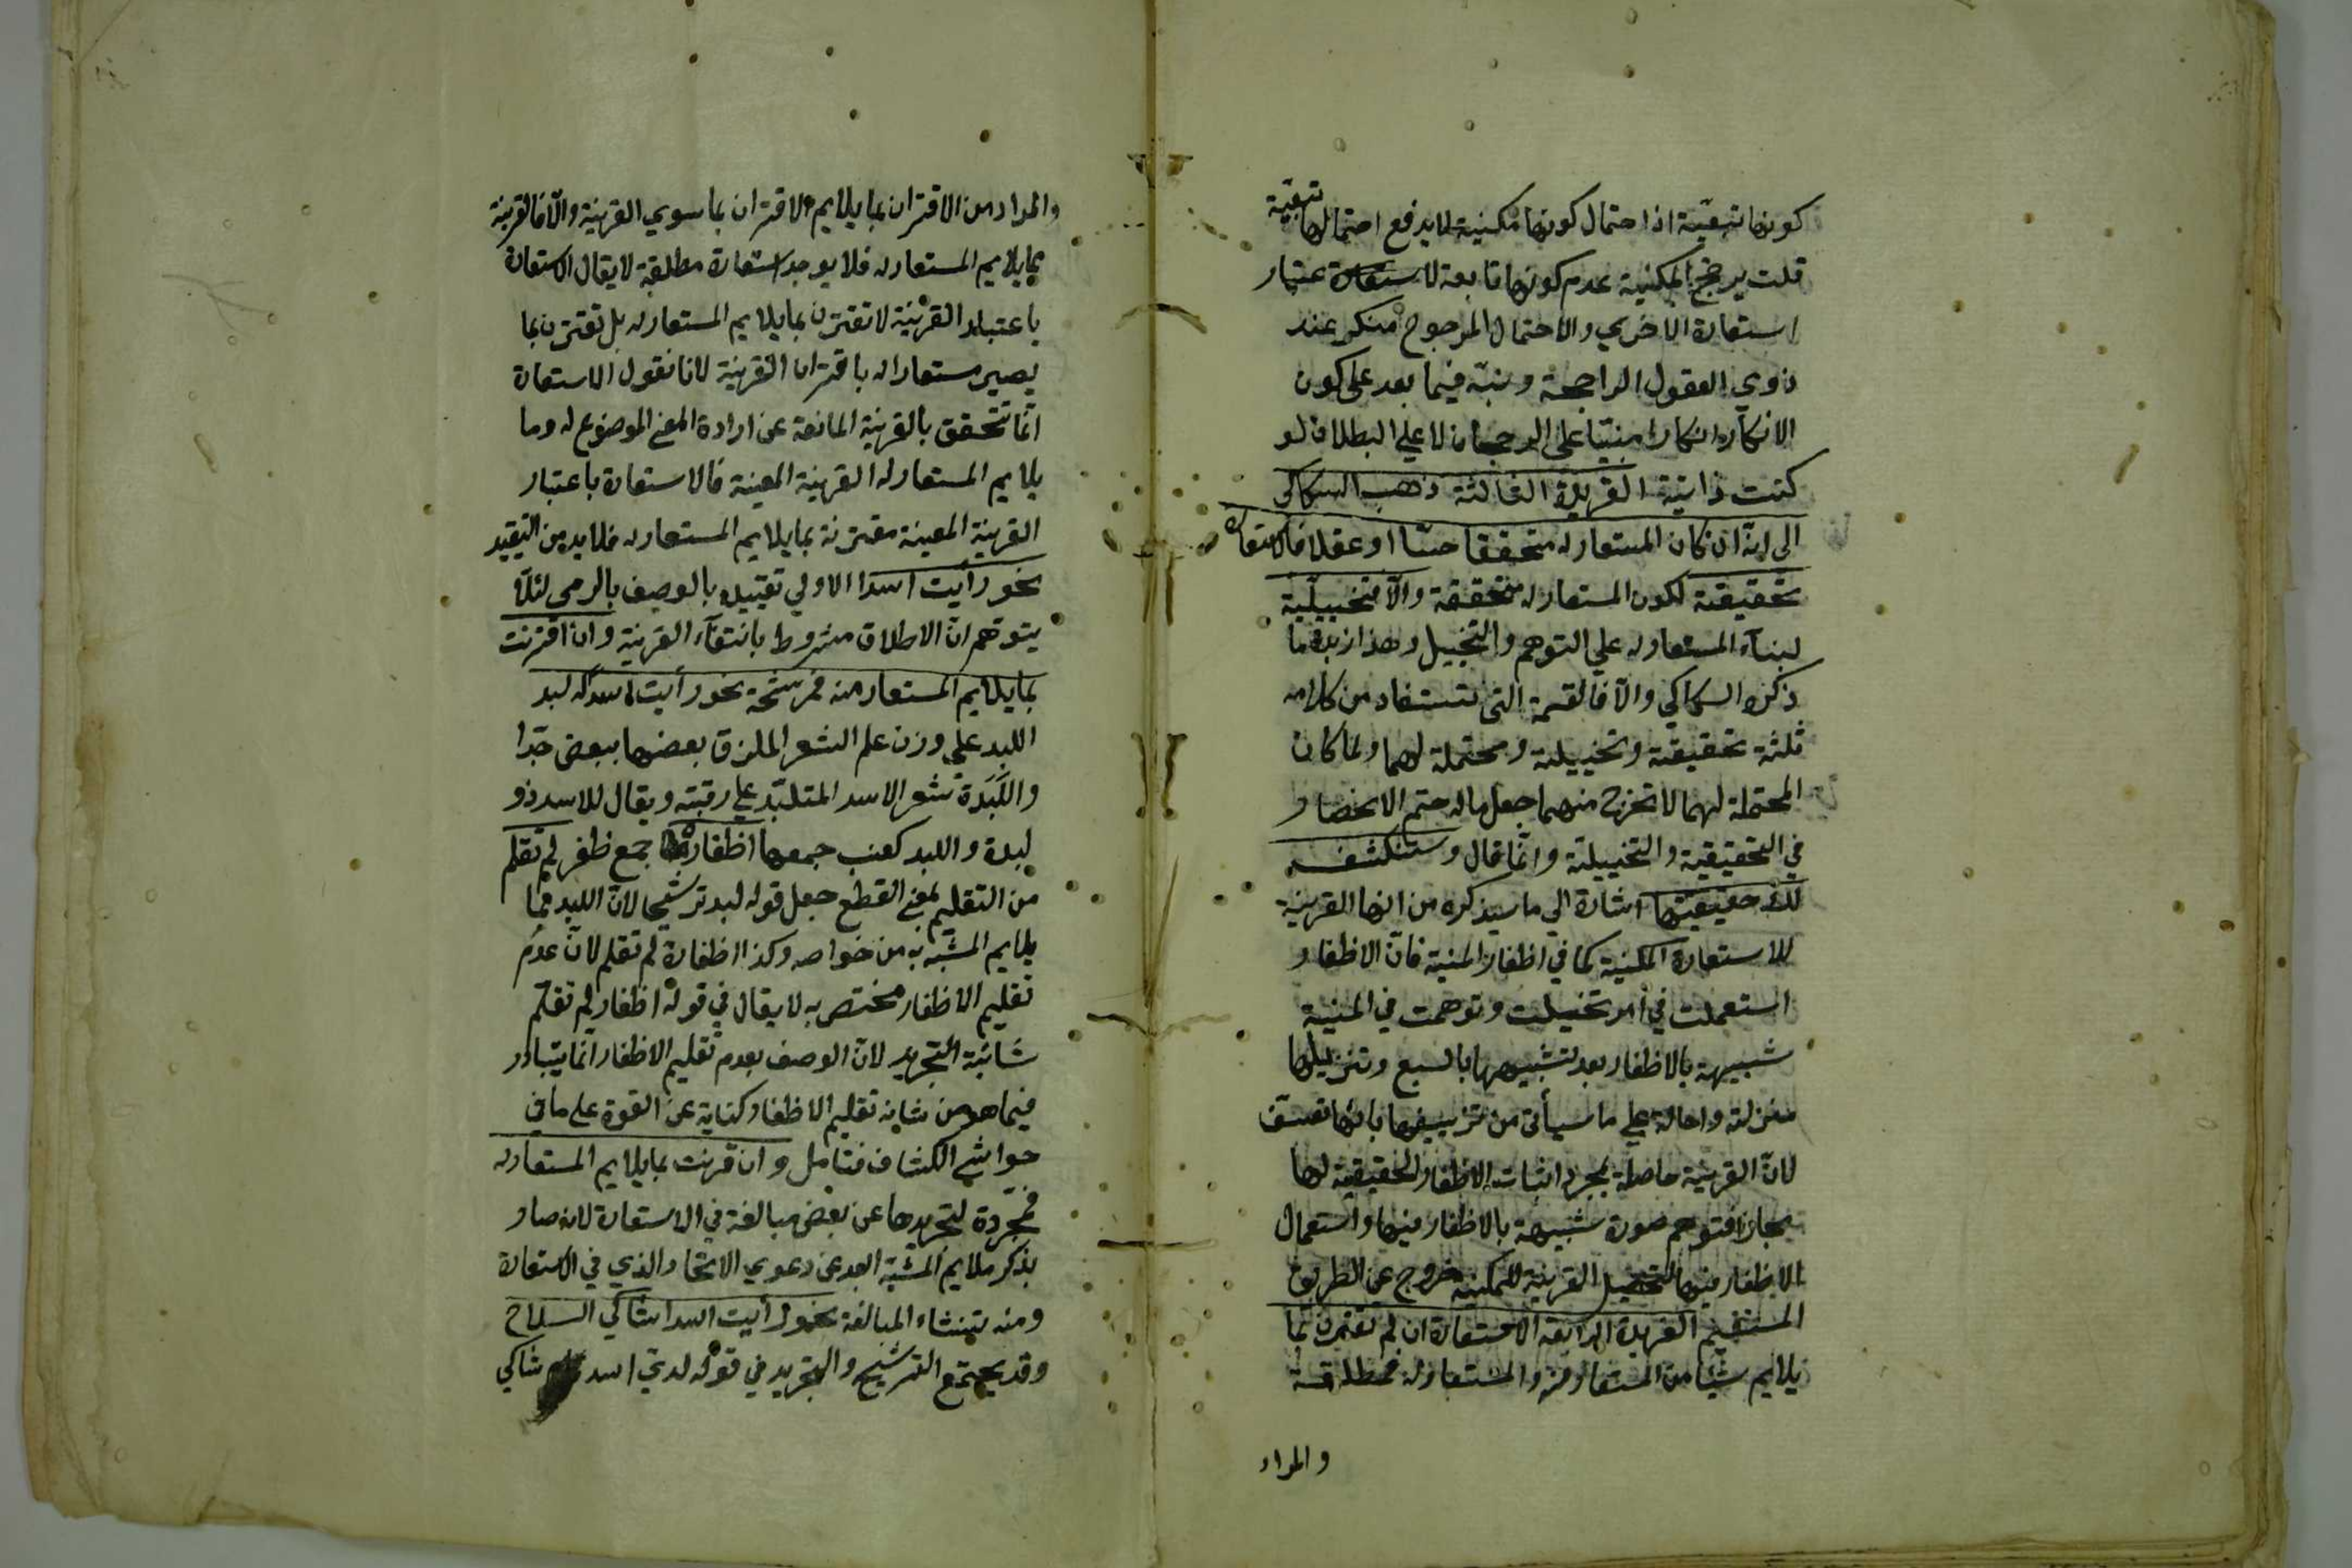 كونها تبعيّة اذا احتمال كونها مكنية لا يدفع احتمالها تبعيّة
قلت يرجح المكنية عدم كونها تابعة لاستعارة عتبار
استعارة الاخري والاحتمال المرجوح منكر عند
ذوي العقول الراجحة ونبّه فيما بعد على كون
الانكاره انكارا مبنيّا على الرجحان لا على البطلان لو
كنت ذا تبة الفريدة الثالثة ذهب السكاكي
الى انه ان كان المستعار له متحققا حسّا او عقلا فالاستعارة
تحقيقية لكون المستعار له متحققة والّا فتخييلية
لبناء المستعار له على التوهم والتخييل وهذا زبدة ما
ذكره السكاكي والّا فالقسمة التى تستفاد من كلامه
ثلثة تحقيقية وتخييلية ومحتملة لهما ولما كان
المحتملة لهما لا تخرج منهما جعل ماله حتم الانحصار
في التحقيقية والتخييلية وانّما قال وستنكشف
لك حقيقتها اشارة الي ما سيذكره من انها القرينة
للاستعارة المكنية كما في اظفار المنية فانّ الاظفار
استعملت في امر تخيلت وتوهمت في المنية
شبيهة بالاظفار بعد تشبيهها بالسبع وتنزيلها
منزلته واحالة على ما سيأتى من تزييفها بانها تعسّف
لانّ القرينة حاصلة بمجرد اثبات الاظفار الحقيقية لها
مجازا فتوهم صورة شبيهة بالاظفار فيها واستعمال
الاظفار فيها لتحصيل القرينة للمكنية خروج عن الطريق
المستقيم الفريدة الرابعة الاستعارة ان لم تقترن بما
يلايم شيئا من المستعار منه والمستعار له فمطلقة
والمراد
والمراد من الاقتران بما يلايم الاقتران بما سوي القرينة والّا فالقرينة
مما يلايم المستعار له فلا يوجد استعارة مطلقة لا يقال الاستعارة
باعتبار القرينة لا تقترن بما يلايم المستعار له بل تقترن بما
يصير مستعارا له باقتران القرينة لانا نقول الاستعارة
انّما تتحقق بالقرينة المانعة عن ارادة المعنى الموضوع له وما
يلايم المستعار له القرينة المعينة فالاستعارة باعتبار
القرينة المعينة مقترنة بما يلايم المستعار له فلا بد من التقييد
نحو رأيت اسدا الاولي تقييده بالوصف بالرمى لئلّا
يتوهم انّ الاطلاق مشروط بانتفاء القرينة وان اقترنت
بما يلايم المستعار منه فمرشحة نحو رأيت اسدا له لبد
اللبد على وزن علم الشعر الملزق بعضها ببعض جّدا
واللَّبَدة شعر الاسد المتلبّد على رقبته ويقال للاسد ذو
لبدة واللبد كعنب جمعها اظفاره جمع ظفر لم تقلم
من التقليم بمعنى القطع جعل قوله لبد ترشيحا لانّ اللبد ممّا
يلايم المشبّه به من خواصه وكذا اظفاره لم تقلم لانّ عدم
تقليم الاظفار مختص به لا يقال في قوله اظفاره لم تقلّم
شائبة التجريد لانّ الوصف بعدم تقليم الاظفار انّما يتبادر
فيما هو من شانه تقليم الاظفار كناية عن القوة على ما في
حواشي الكشاف فتامل وان قرنت بما يلايم المستعار له
فمجرّدة لتجريدها عن بعض مبالغة في الاستعارة لانه صار
بذكر ملايم المشبّه ابعد عن دعوي الاتحاد الذي في الاستعارة
ومنه تنشاء المبالغة نحو رأيت اسدا شاكي السلاح
وقد يجتمع الترشيح والتجريد في قوله لدي اسد شاكي